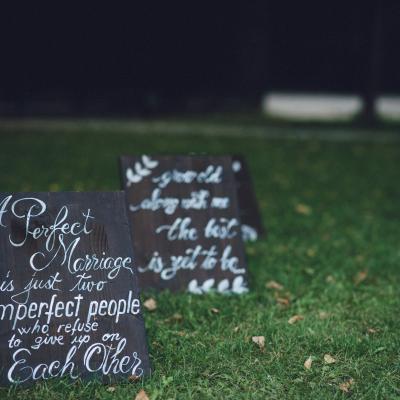 A Perfect
Marriage
is just two
imperfect people
who refuse
to give up on
Each Other
grow old
along with me
the best
is yet to be